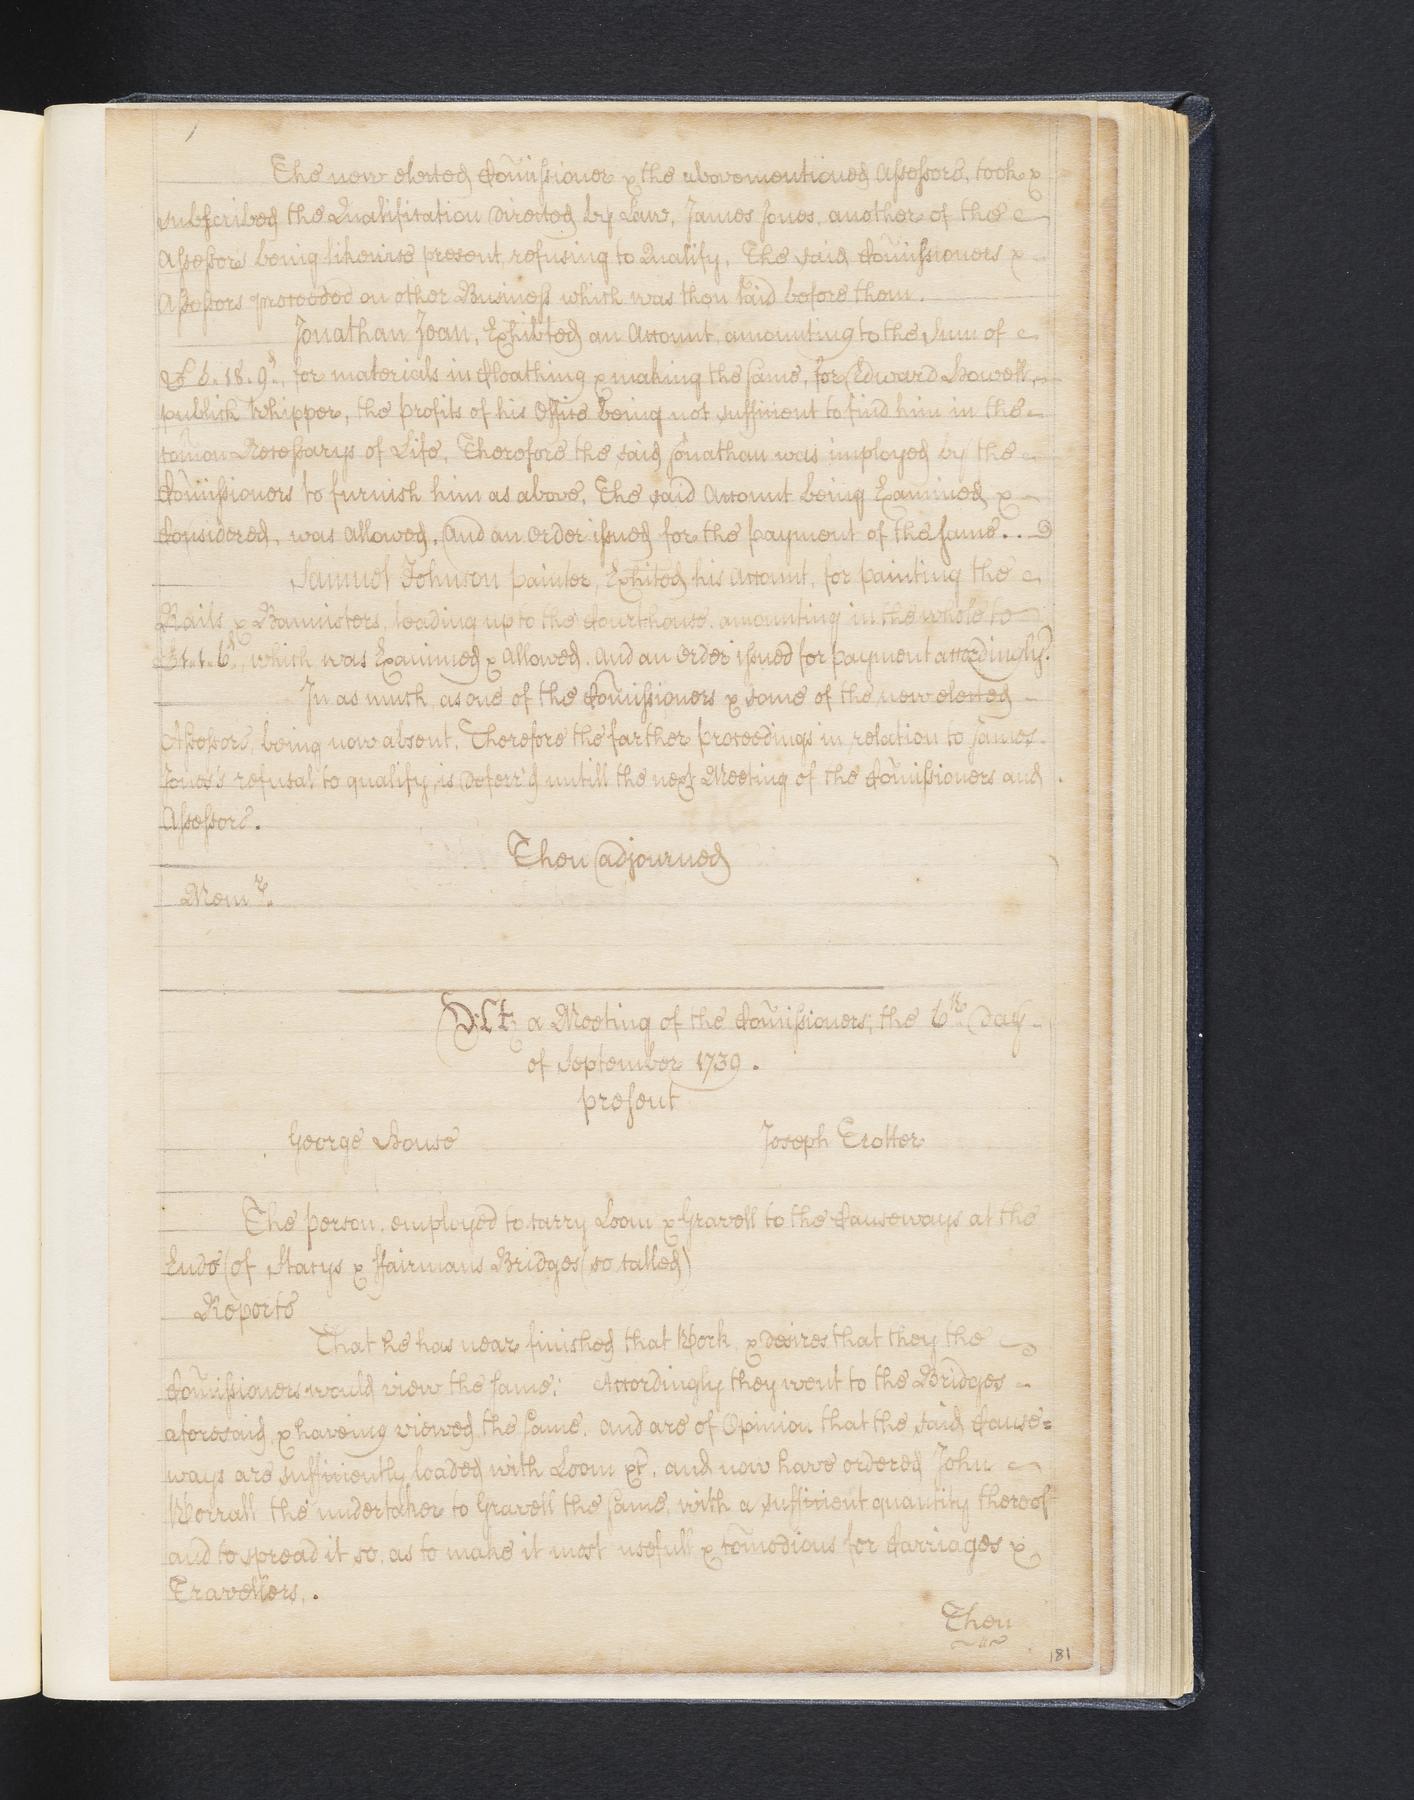 The new elected Com̃issioner & the abovementioned Assessors, took &
subscribed the Qualification Directed by Law, James Jones, another of the
Assessors being likewise present, refusing to Qualify, The said Com̃issioners &
Assessors proceeded on other Business which was then laid before them.
Jonathan Jean, Exhibited an Account, amounting to the Sum of
of 6. 18. 9d., for materials in Cloathing & making the same, for Edward Howell,
publick Whipper, the profits of his Office being not sufficient to find him in the
com̃on Necessarys of Life, Therefore the said Jonathan was imployed by the
Com̃issioners to furnish him as above, The said Account being Examined &
Considered, was allowed, And an Order issued for the payment of the same..
Samuel Johnson painter, Exhited his Account, for painting the
Rails & Bannisters, leading up to the Courthouse, amounting in the whole to
£1.1.6d, which was Examined & Allowed. And an Order issued for payment accordingly.
In as much as one of the Com̃issioners & some of the new elected
Assessors, being now absent, Therefore the farther proceedings in relation to James
Jones's refusal to qualify, is Deferr'd untill the next Meeting of the Com̃issioners and
Assessors.
Then adjourned
Memr.
At a Meeting of the Com̃issioners, the 6th Day
of September 1739.
present
George House Joseph Trotter
The person employed to carry Loom & Gravell to the Causeways at the
Ends (of Stacys & ffairmans Bridges (so called)
Reports
That he has near finished that Work, & desires that they the
Com̃issioners would view the same; Accordingly they went to the Bridges
aforesaid & haveing viewed the same, and are of Opinion that the said Cause=
ways are sufficiently loaded with Loom &c, and now have ordered John
Worrall the undertaker to Gravell the same, with a sufficient quantity thereof
and to spread it so, as to make it most usefull & com̃odious for Carriages &
Travellers.
Then
181